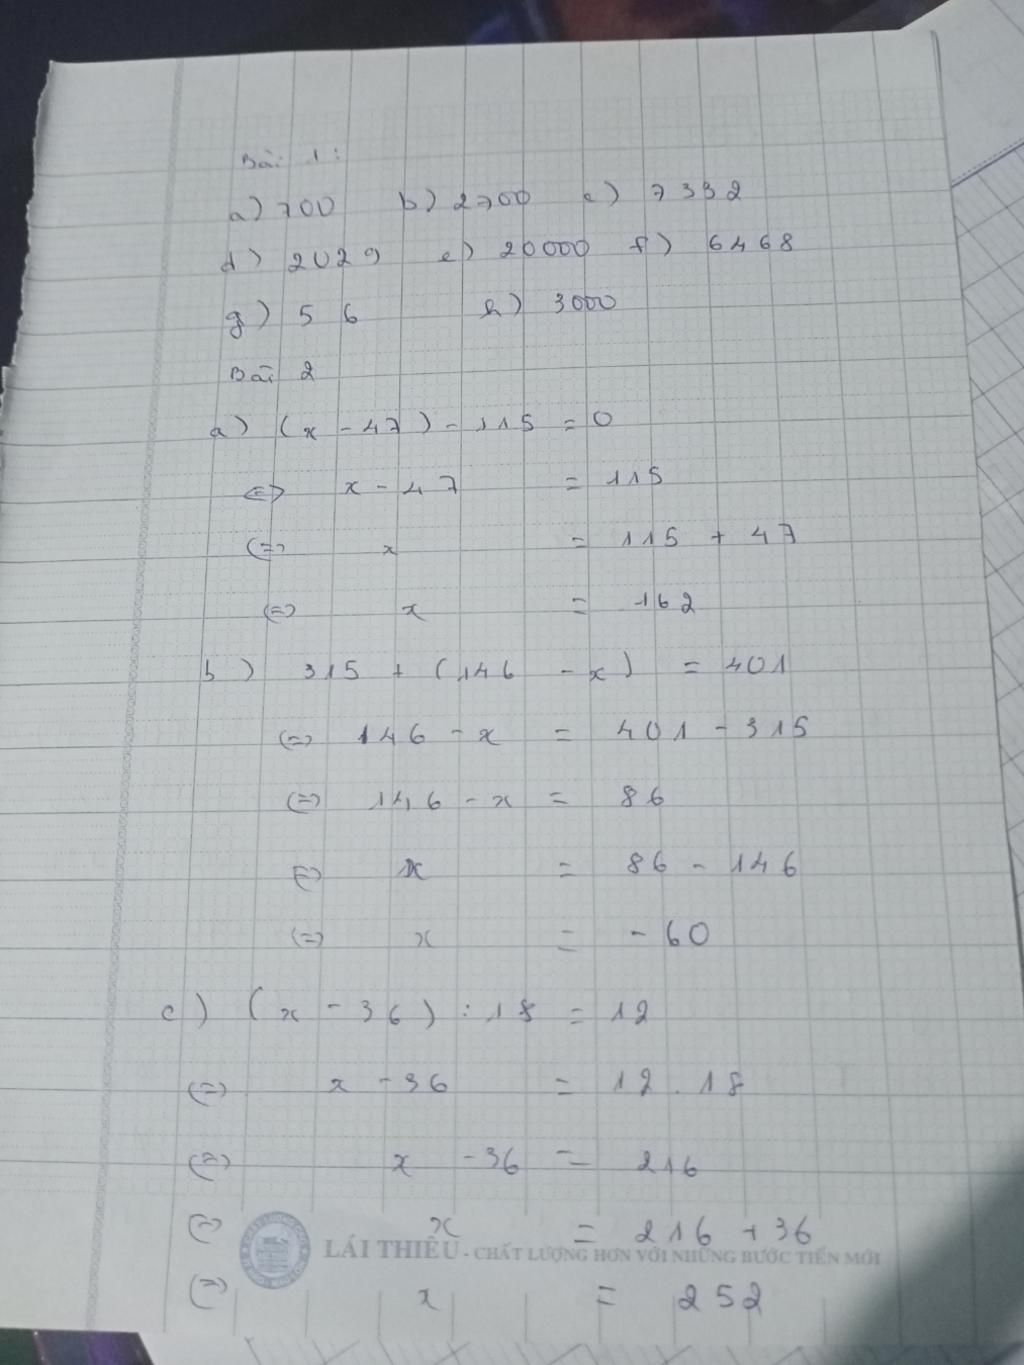 Bài 1:
a) 700 b) 2700 c) 7332
d) 2029 e) 20000 f) 6468
g) 56 h) 3000
Bài 2
a) (x - 47) - 115 = 0
<=> x - 47 = 115
<=> x = 115 + 47
<=> x = 162
b) 315 + (146 - x) = 401
<=> 146 - x = 401 - 315
<=> 146 - x = 86
<=> x = 86 - 146
<=> x = - 60
c) (x - 36) : 18 = 12
<=> x - 36 = 12 . 18
<=> x - 36 = 216
<=> x = 216 + 36
LÁI THIÊU - CHẤT LƯỢNG HƠN VỚI NHỮNG BƯỚC TIẾN MỚI
<=> x = 252